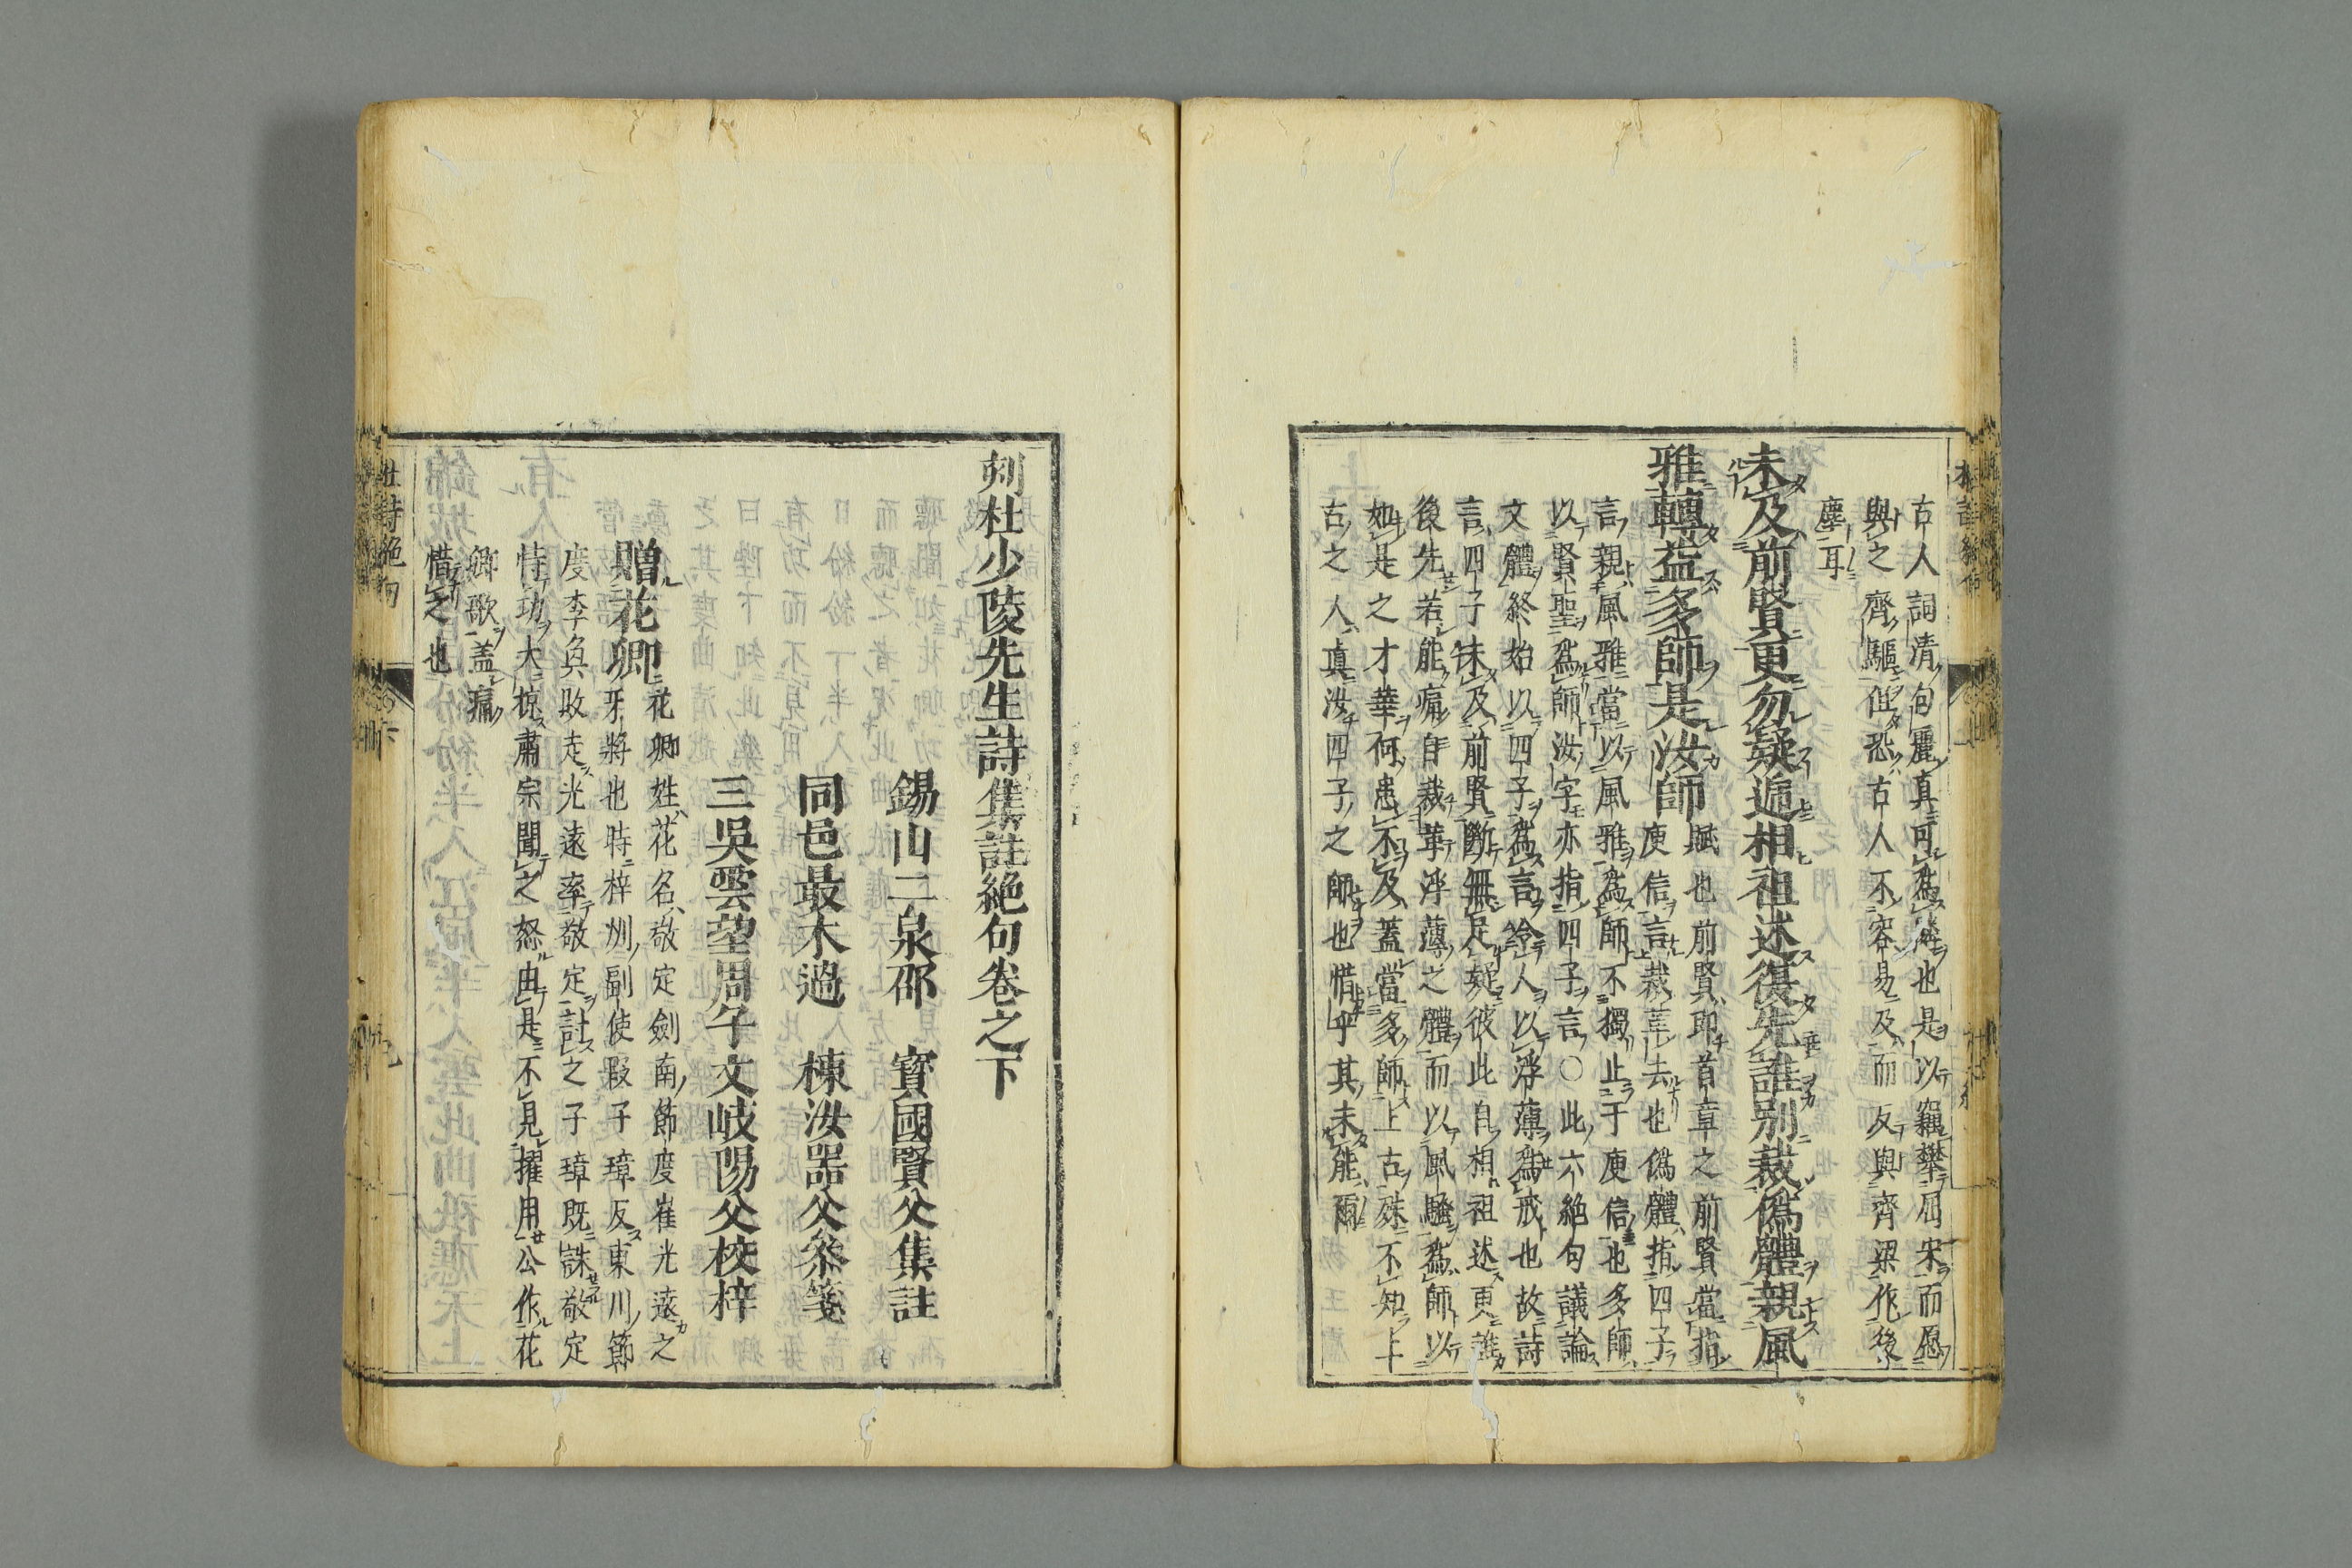 古人詞清句麗真可為隣也是以竊攀屈宋而愿
與之齊驅但恐古人不容易及而反與齊梁作後
塵耳
未及前賢更勿疑遞相祖述復先誰別裁偽體親風
雅轉益多師是汝師
賦也前賢即首章之前賢當指
庾信言裁革去也偽體指四子
言親風雅當以風雅為師不獨止于庾信也多師
以賢聖為師汝字亦指四子言○此六絕句議論
文體終始以四子為言令人以浮薄為戒也故詩
言四子未及前賢斷無足疑彼此自相祖述更誰
後先若能痛自裁革浮薄之體而以風騷為師以
如是之才華何患不及蓋當多師上古殊不知上
古之人真汝四子之師也惜乎其未能爾
刻杜少陵先生詩集註絕句卷之下
錫山二泉邵 寶國賢父集註
同邑最木過 棟汝器父參箋
三吳雲望周午文岐陽父校梓
贈花卿
花卿姓花名敬定劍南節度崔光遠之
牙將也時梓州副使段子璋反東川節
度李奐敗走光遠率敬定討之子璋既誅敬定
恃功大掠肅宗聞之怒由是不見擢用公作花
卿歌蓋痛
惜之也
杜詩絕句